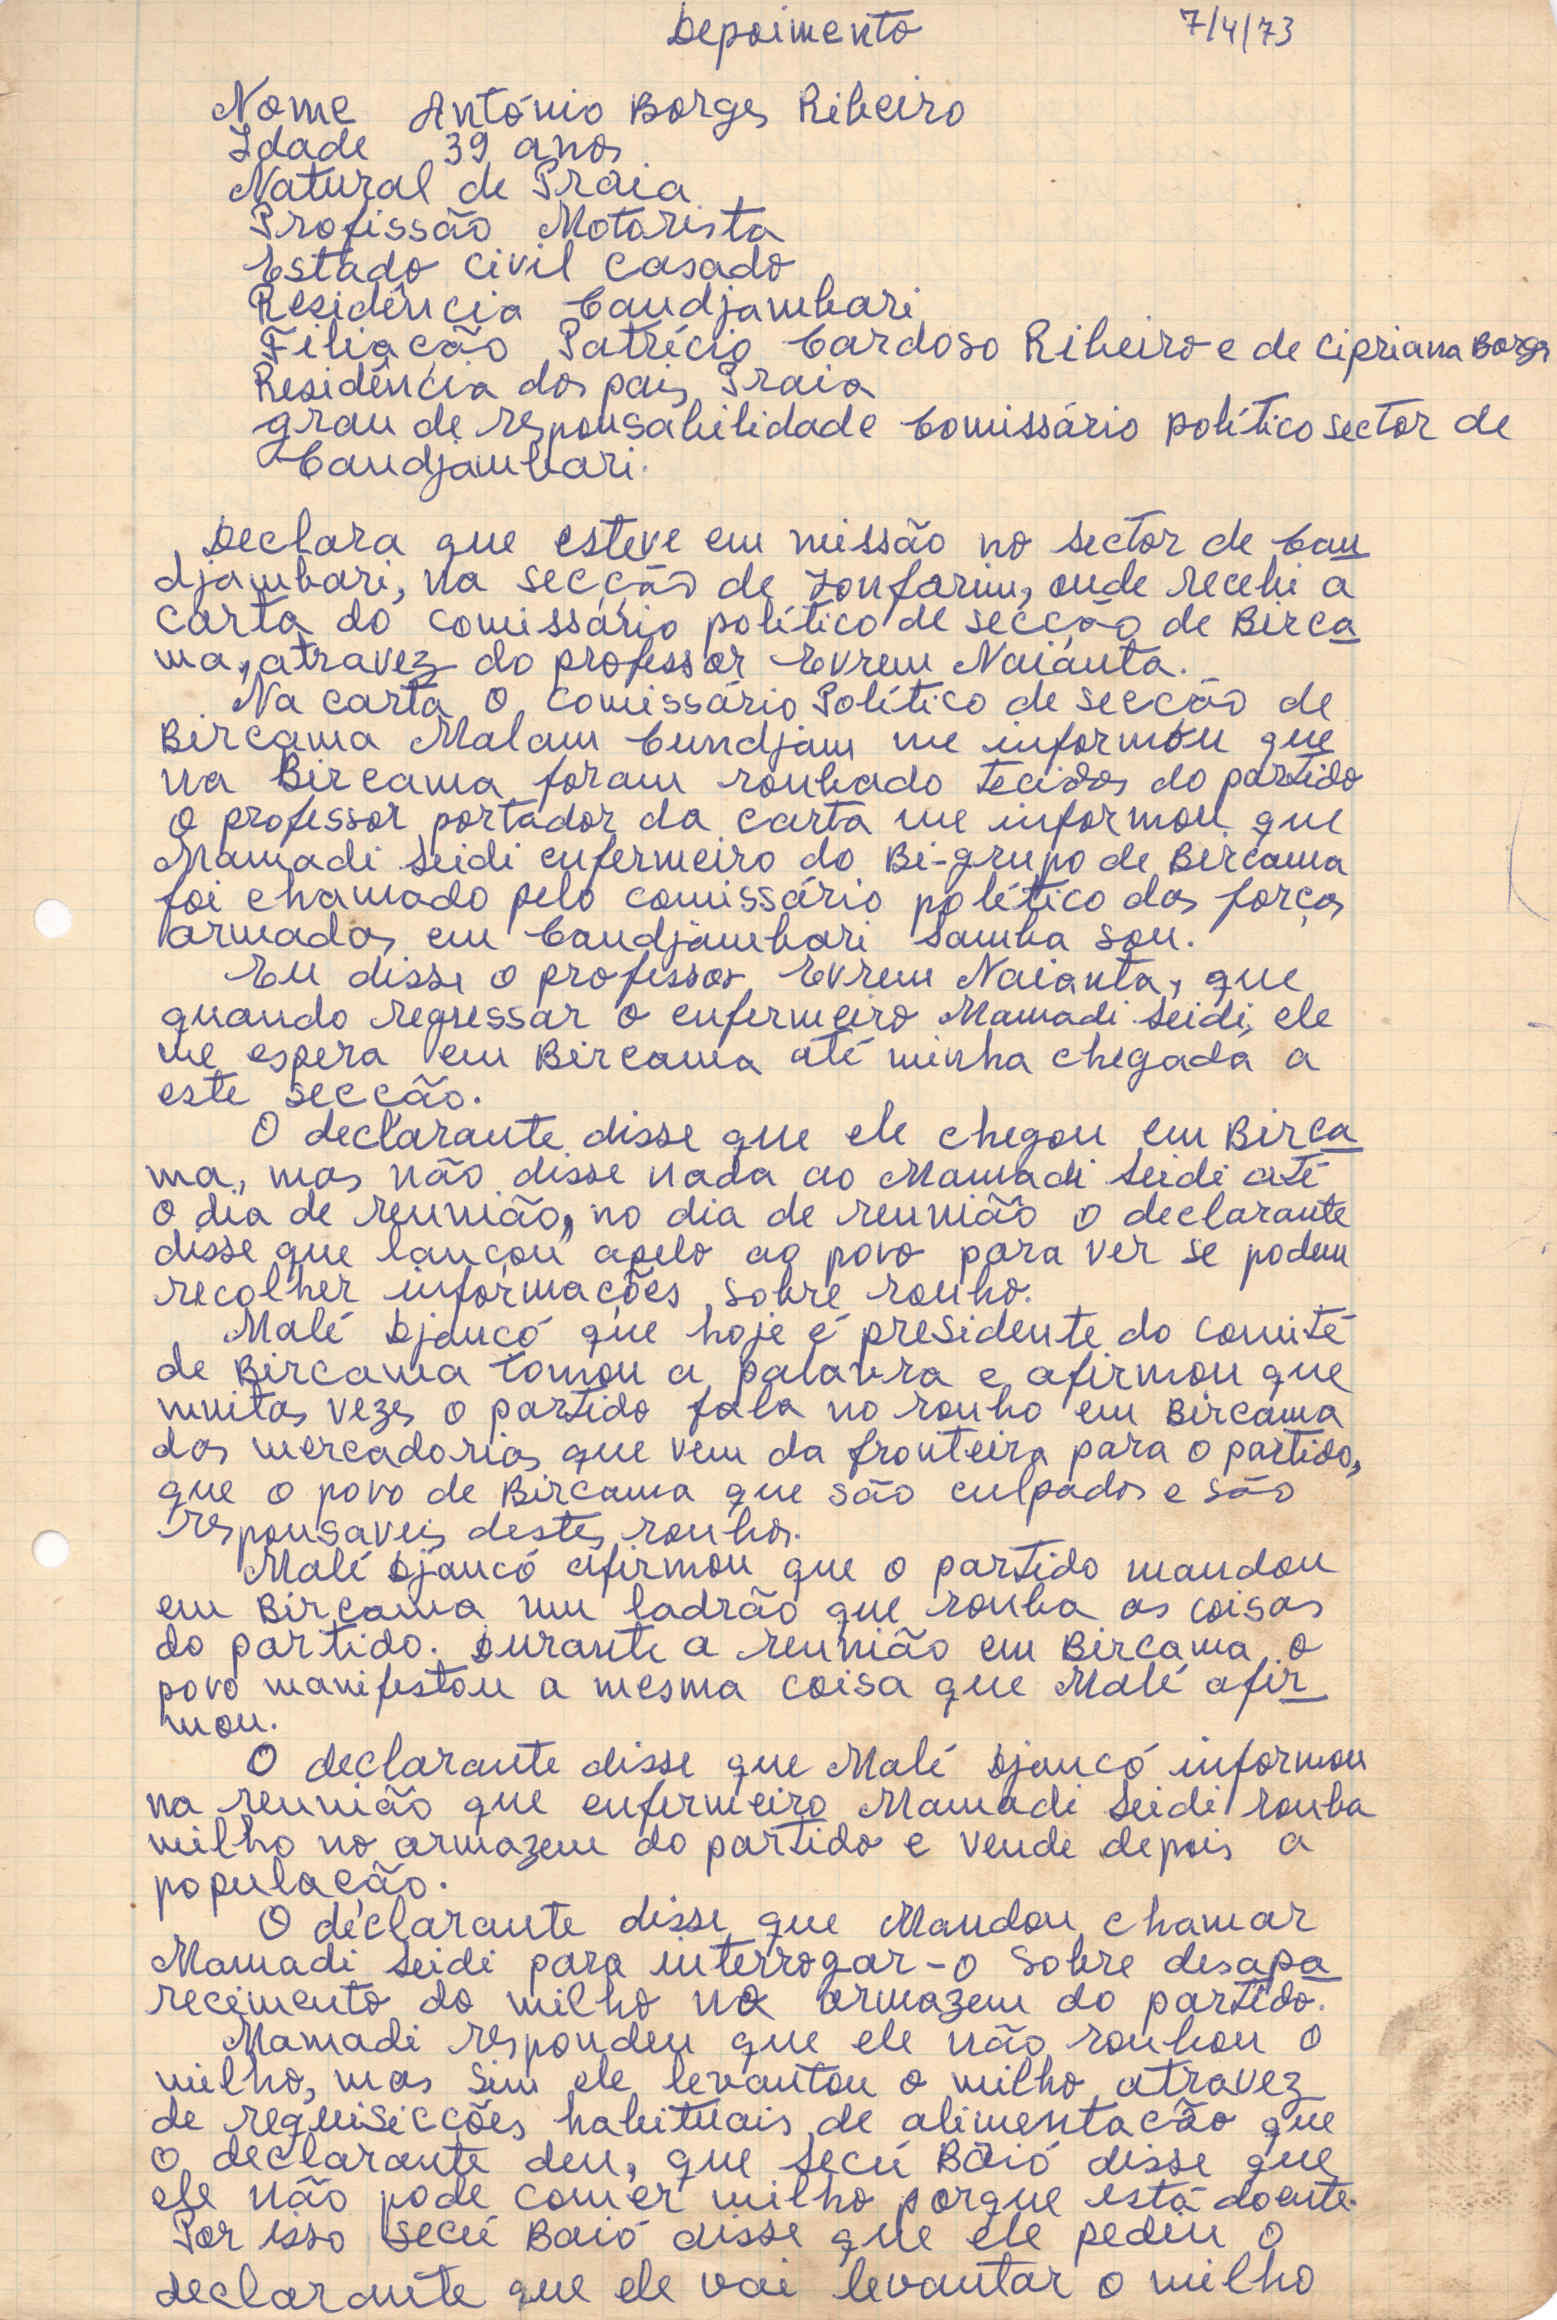 Depoimento 7/4/73
Nome António Borges Ribeiro
Idade 39 anos
Natural de Praia
Profissão Motorista
Estado civil casado
Residência Candjambari
Filiação Patrício Cardoso Ribeiro e de Cipriana Borges
Residência dos pais Praia
grau de responsabilidade Comissário político sector de
Candjambari.
Declara que esteve em missão no sector de Can
djambari, na secção de Jonfarim, onde recebi a
carta do comissário político de secção de Birca
ma, atravez do professor Evrem Naianta.
Na carta o comissário Político de secção de
Bircama Malam Cundjam me informou que
na Bircama foram roubado tecidos do partido
O professor portador da carta me informou que
Mamadi Seidi enfermeiro do Bi-grupo de Bircama
foi chamado pelo comissário político das forças
armadas em Candjambari Samba Sou.
Eu disse o professor Evrem Naianta, que
quando regressar o enfermeiro Mamadi Seidi, ele
me espera em Bircama até minha chegada a
este secção.
O declarante disse que ele chegou em Birca
ma, mas não disse nada ao Mamadi Seidi até
o dia de reunião, no dia de reunião o declarante
disse que lançou apelo ao povo para ver se podem
recolher informações sobre roubo.
Malé Djancó que hoje é presidente do comité
de Bircama tomou a palavra e afirmou que
muitas vezes o partido fala no roubo em Bircama
das mercadorias que vem da fronteira para o partido,
que o povo de Bircama que são culpados e são
responsaveis destes roubos.
Malé Djancó afirmou que o partido mandou
em Bircama um ladrão que rouba as coisas
do partido. Durante a reunião em Bircama o
povo manifestou a mesma coisa que Malé afir
mou.
O declarante disse que Malé Djancó informou
na reunião que enfermeiro Mamadi Seidi rouba
milho no armazem do partido e vende depois a
população.
O declarante disse que Mandou chamar
Mamadi Seidi para interrogar-o sobre desapa
recimento do milho no armazem do partido.
Mamadi respondeu que ele não roubou o
milho, mas sim ele levantou o milho atravez
de requisicções habituais de alimentação que
o declarante deu, que Secú Baió disse que
ele não pode comer milho porque está doente.
Por isso Secú Baió disse que ele pediu o
declarante que ele vai levantar o milho